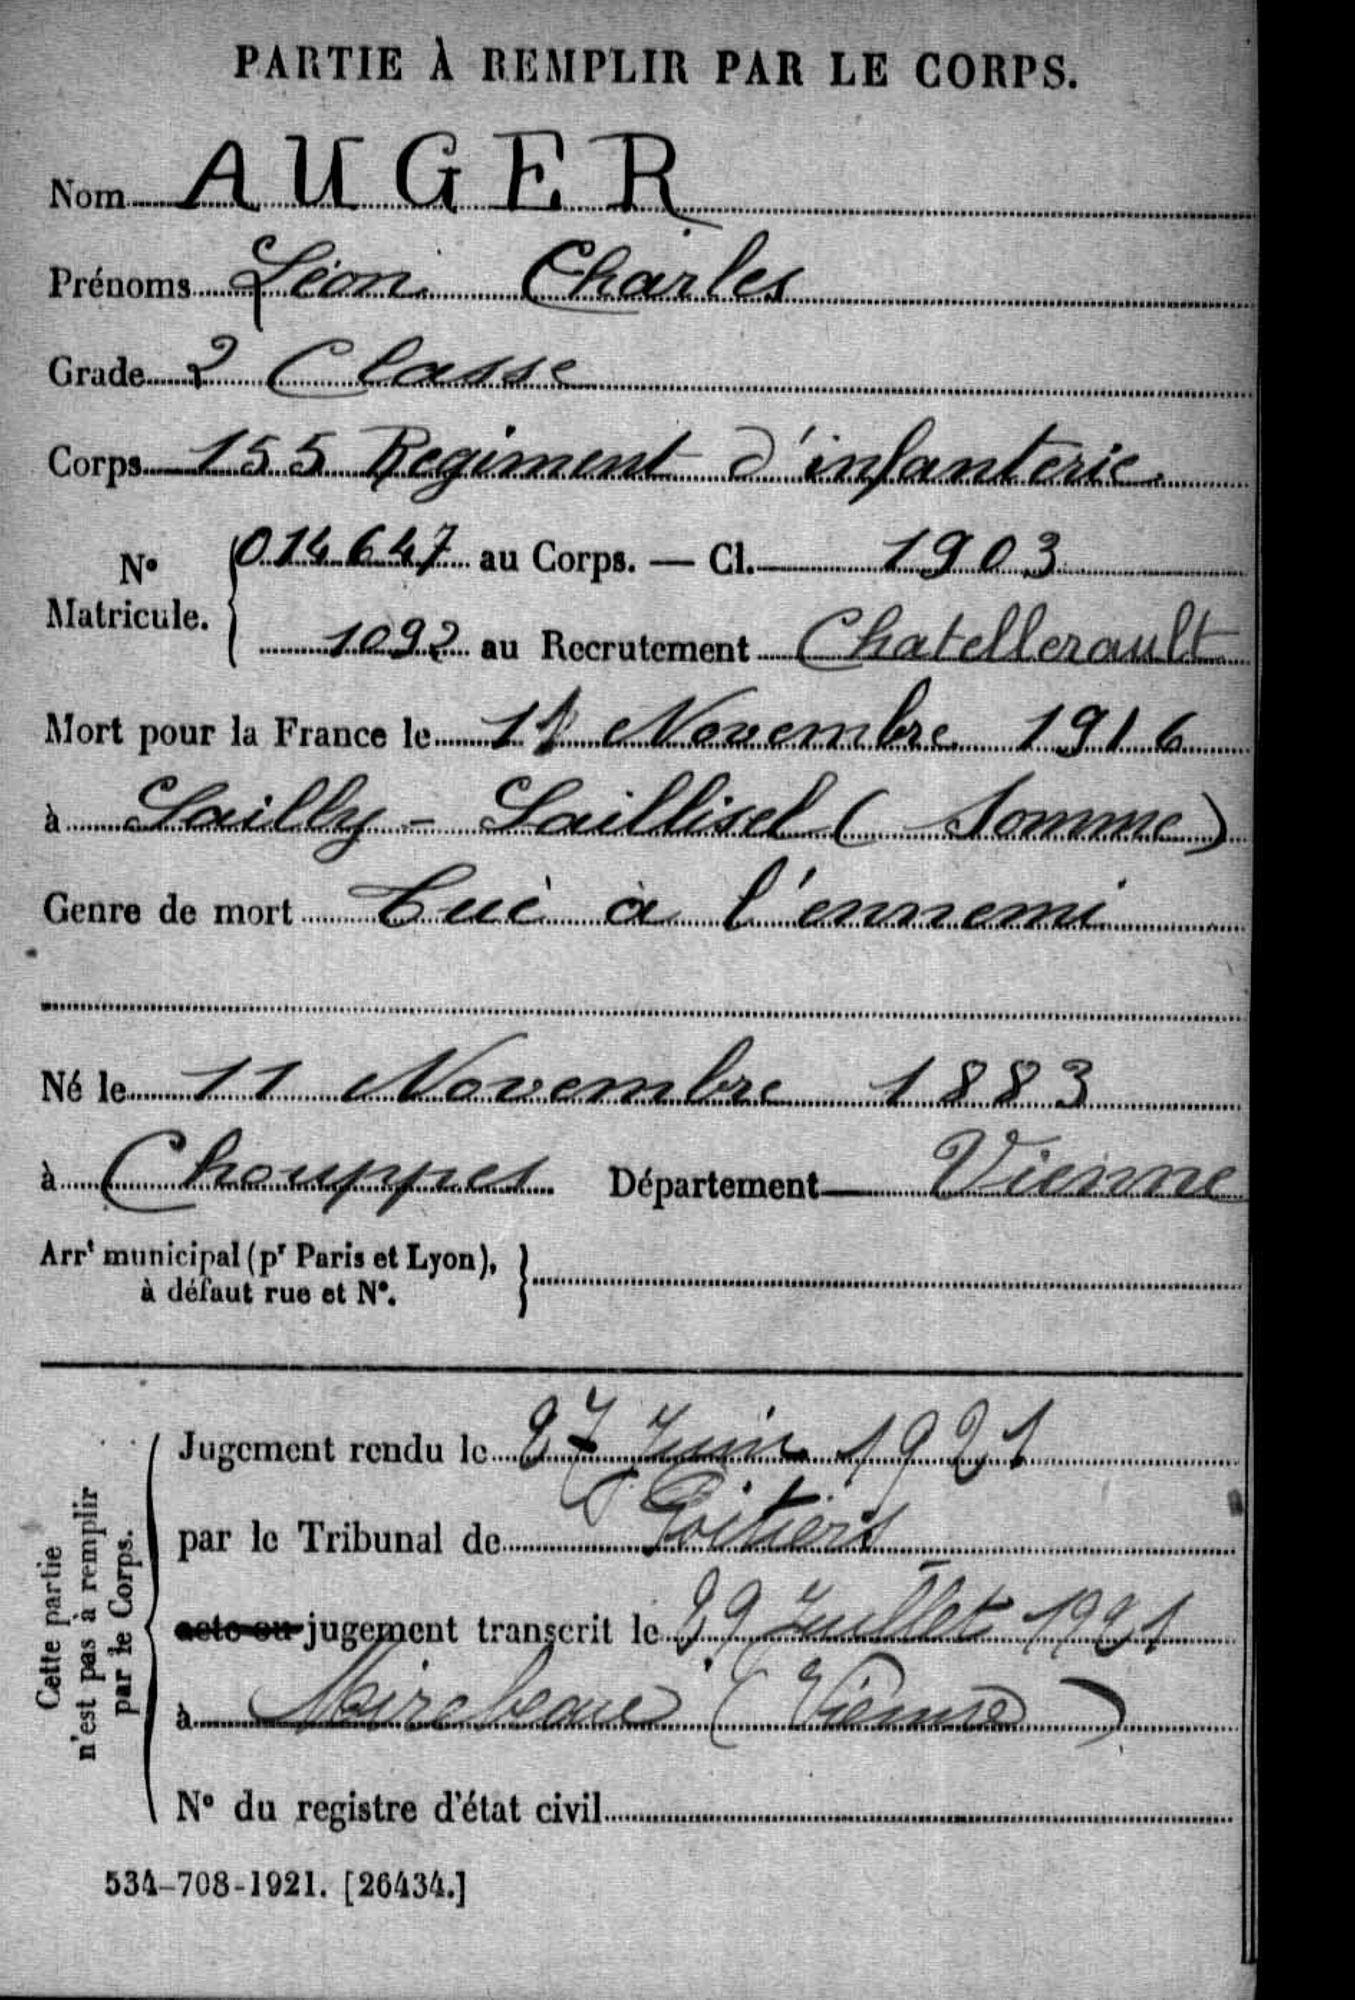 PARTIE À REMPLIR PAR LE CORPS.
Nom AUGER
Prénoms Léon Charles
Grade 2 Classe
Corps 155 Regiment d'infanterie
N° Matricule. { 014647 au Corps. — Cl. 1903
1092 au Recrutement Chatellerault
Mort pour la France le 11 Novembre 1916
à Sailly - Saillisel (Somme)
Genre de mort Tué à l'ennemi
Né le 11 Novembre 1883
à Chouppes Département Vienne
Arrt municipal (pr Paris et Lyon),
à défaut rue et N°.
Cette partie
n'est pas à remplir
par le Corps.
Jugement rendu le 27 Juin 1921
par le Tribunal de Poitiers
acte ou jugement transcrit le 29 Juillet 1921
à Mirebeau (Vienne)
N° du registre d'état civil
534-708-1921. [26434.]